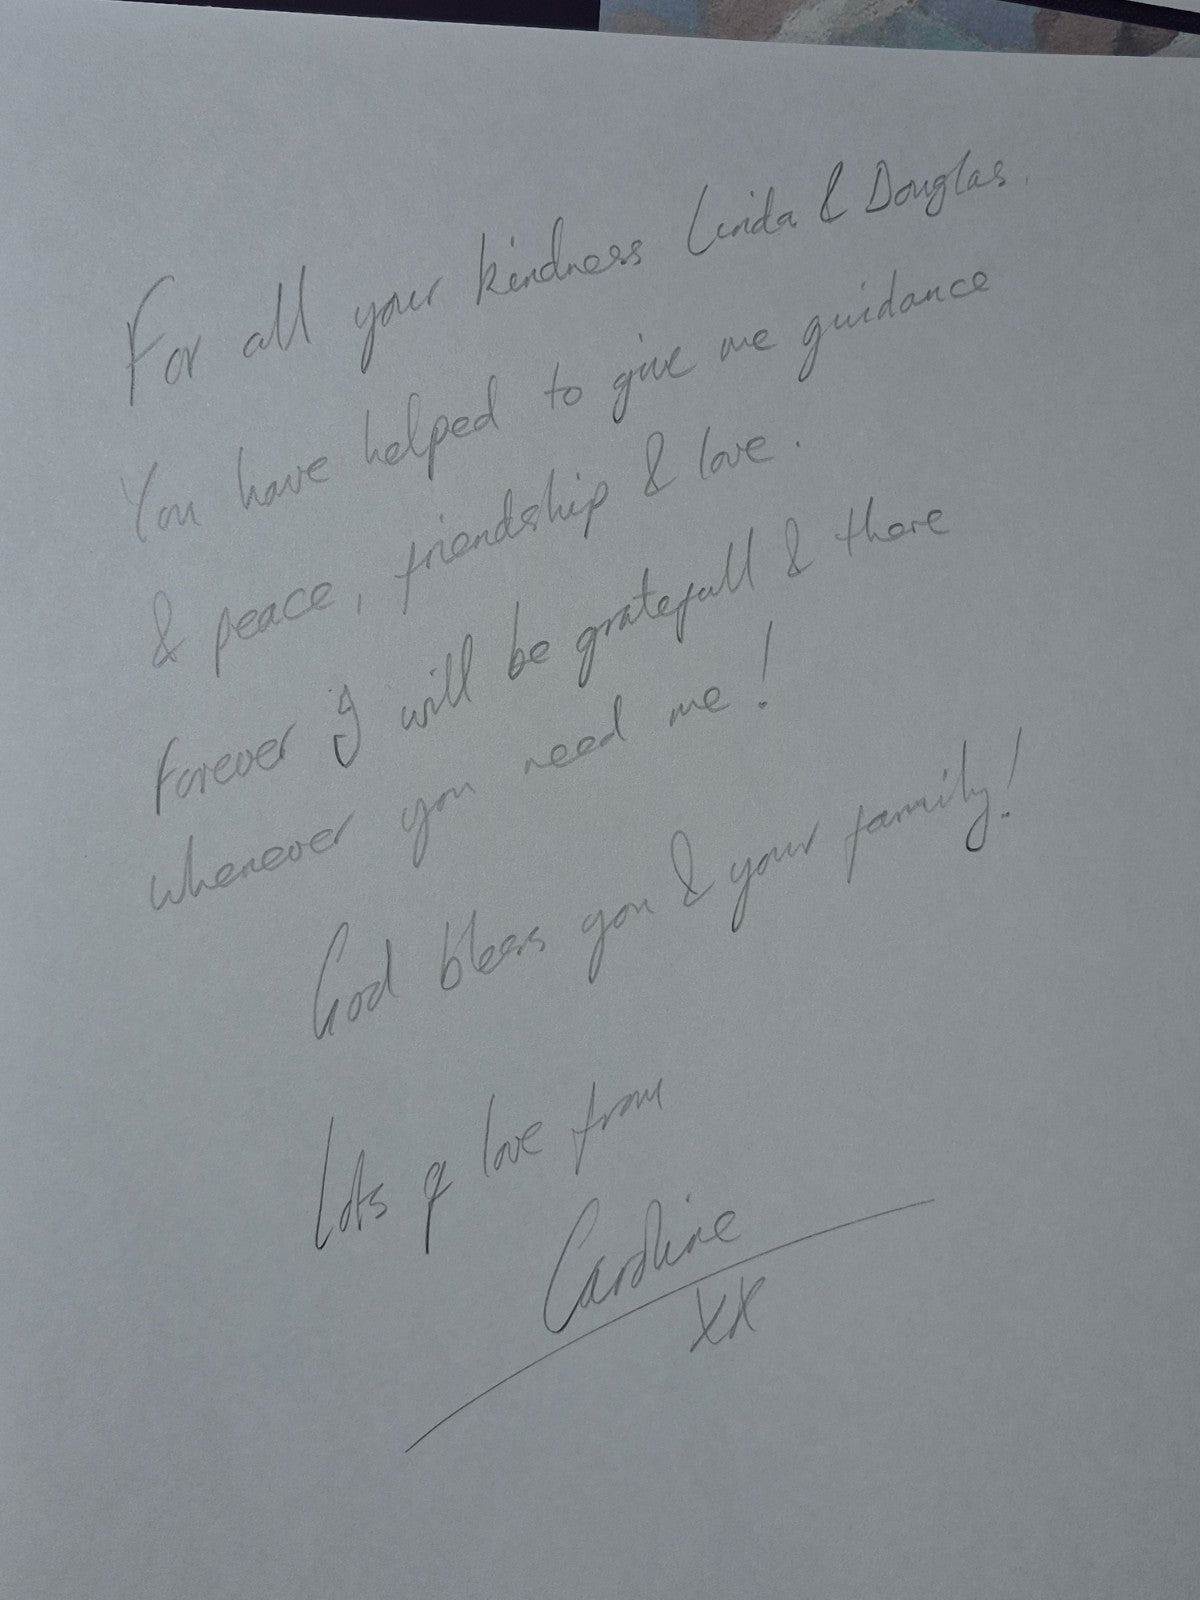 For all your kindness Linda & Douglas.
You have helped to give me guidance
& peace, friendship & love.
Forever I will be gratefull & there
whenever you need me!
God bless you & your family!
Lots of love from
Caroline
xx